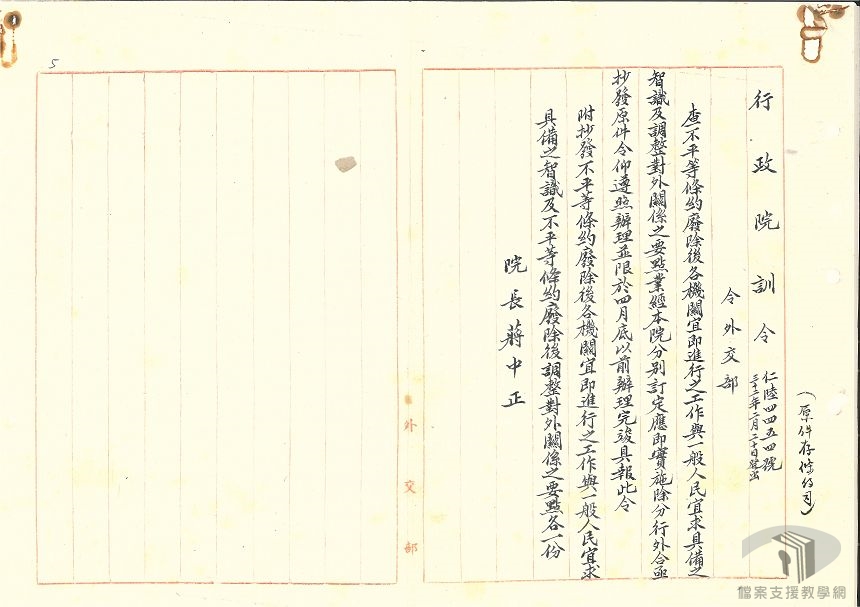 (原件存條約司)
行政院訓令
仁陸四四五四號
三十二年二月二十日發出
令外交部
查不平等條約廢除後各機關宜即進行之工作與一般人民宜求具備之
智識及調整對外關係之要點業經本院分別訂定應即實施除分行外合亟
抄發原件令仰遵照辦理並限於四月底以前辦理完竣具報此令
附抄發不平等條約廢除後各機關宜即進行之工作與一般人民宜求
具備之智識及不平等條約廢除後調整對外關係之要點各一份
院長蔣中正
外交部
5
檔案支援教學網